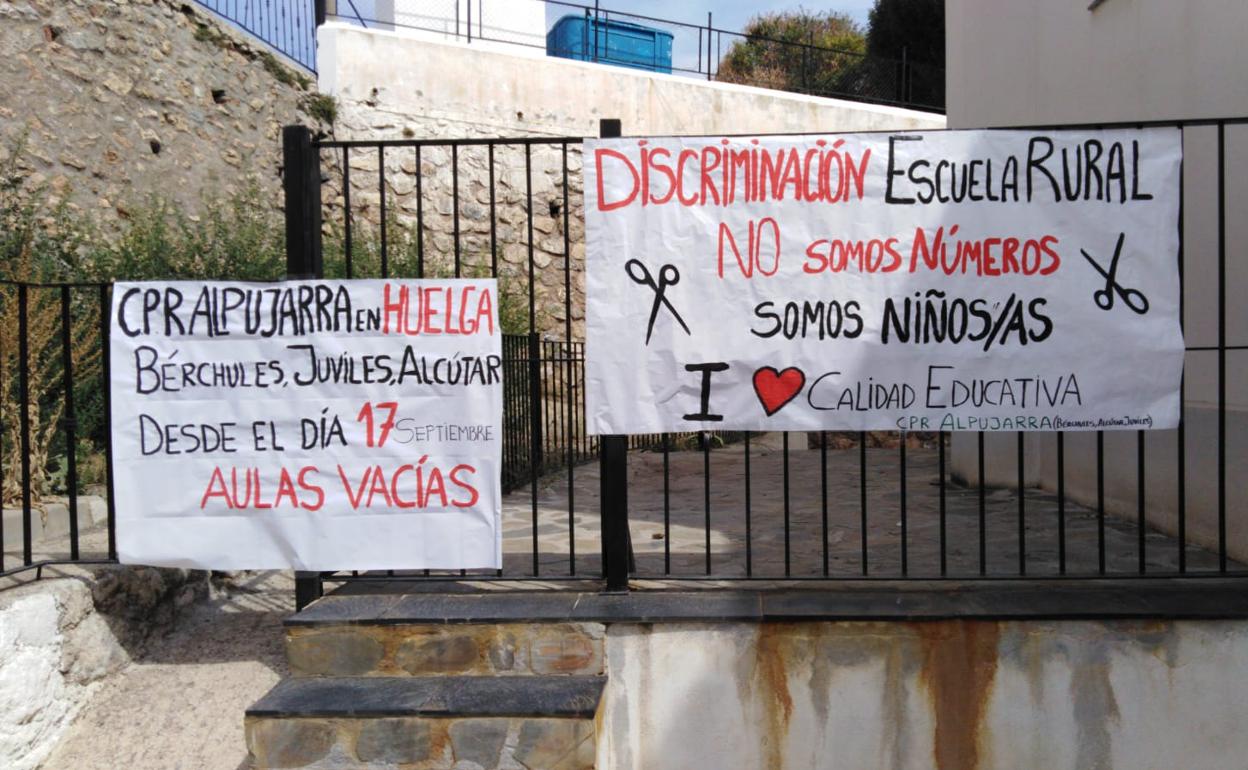 CPR ALPUJARRA EN HUELGA
BÉRCHULES, JUVILES, ALCÚTAR
DESDE EL DÍA 17 SEPTIEMBRE
AULAS VACÍAS
DISCRIMINACIÓN ESCUELA RURAL
NO SOMOS NÚMEROS
SOMOS NIÑOS/AS
I ❤ CALIDAD EDUCATIVA
CPR ALPUJARRA (BÉRCHULES, ALCÚTAR, JUVILES)